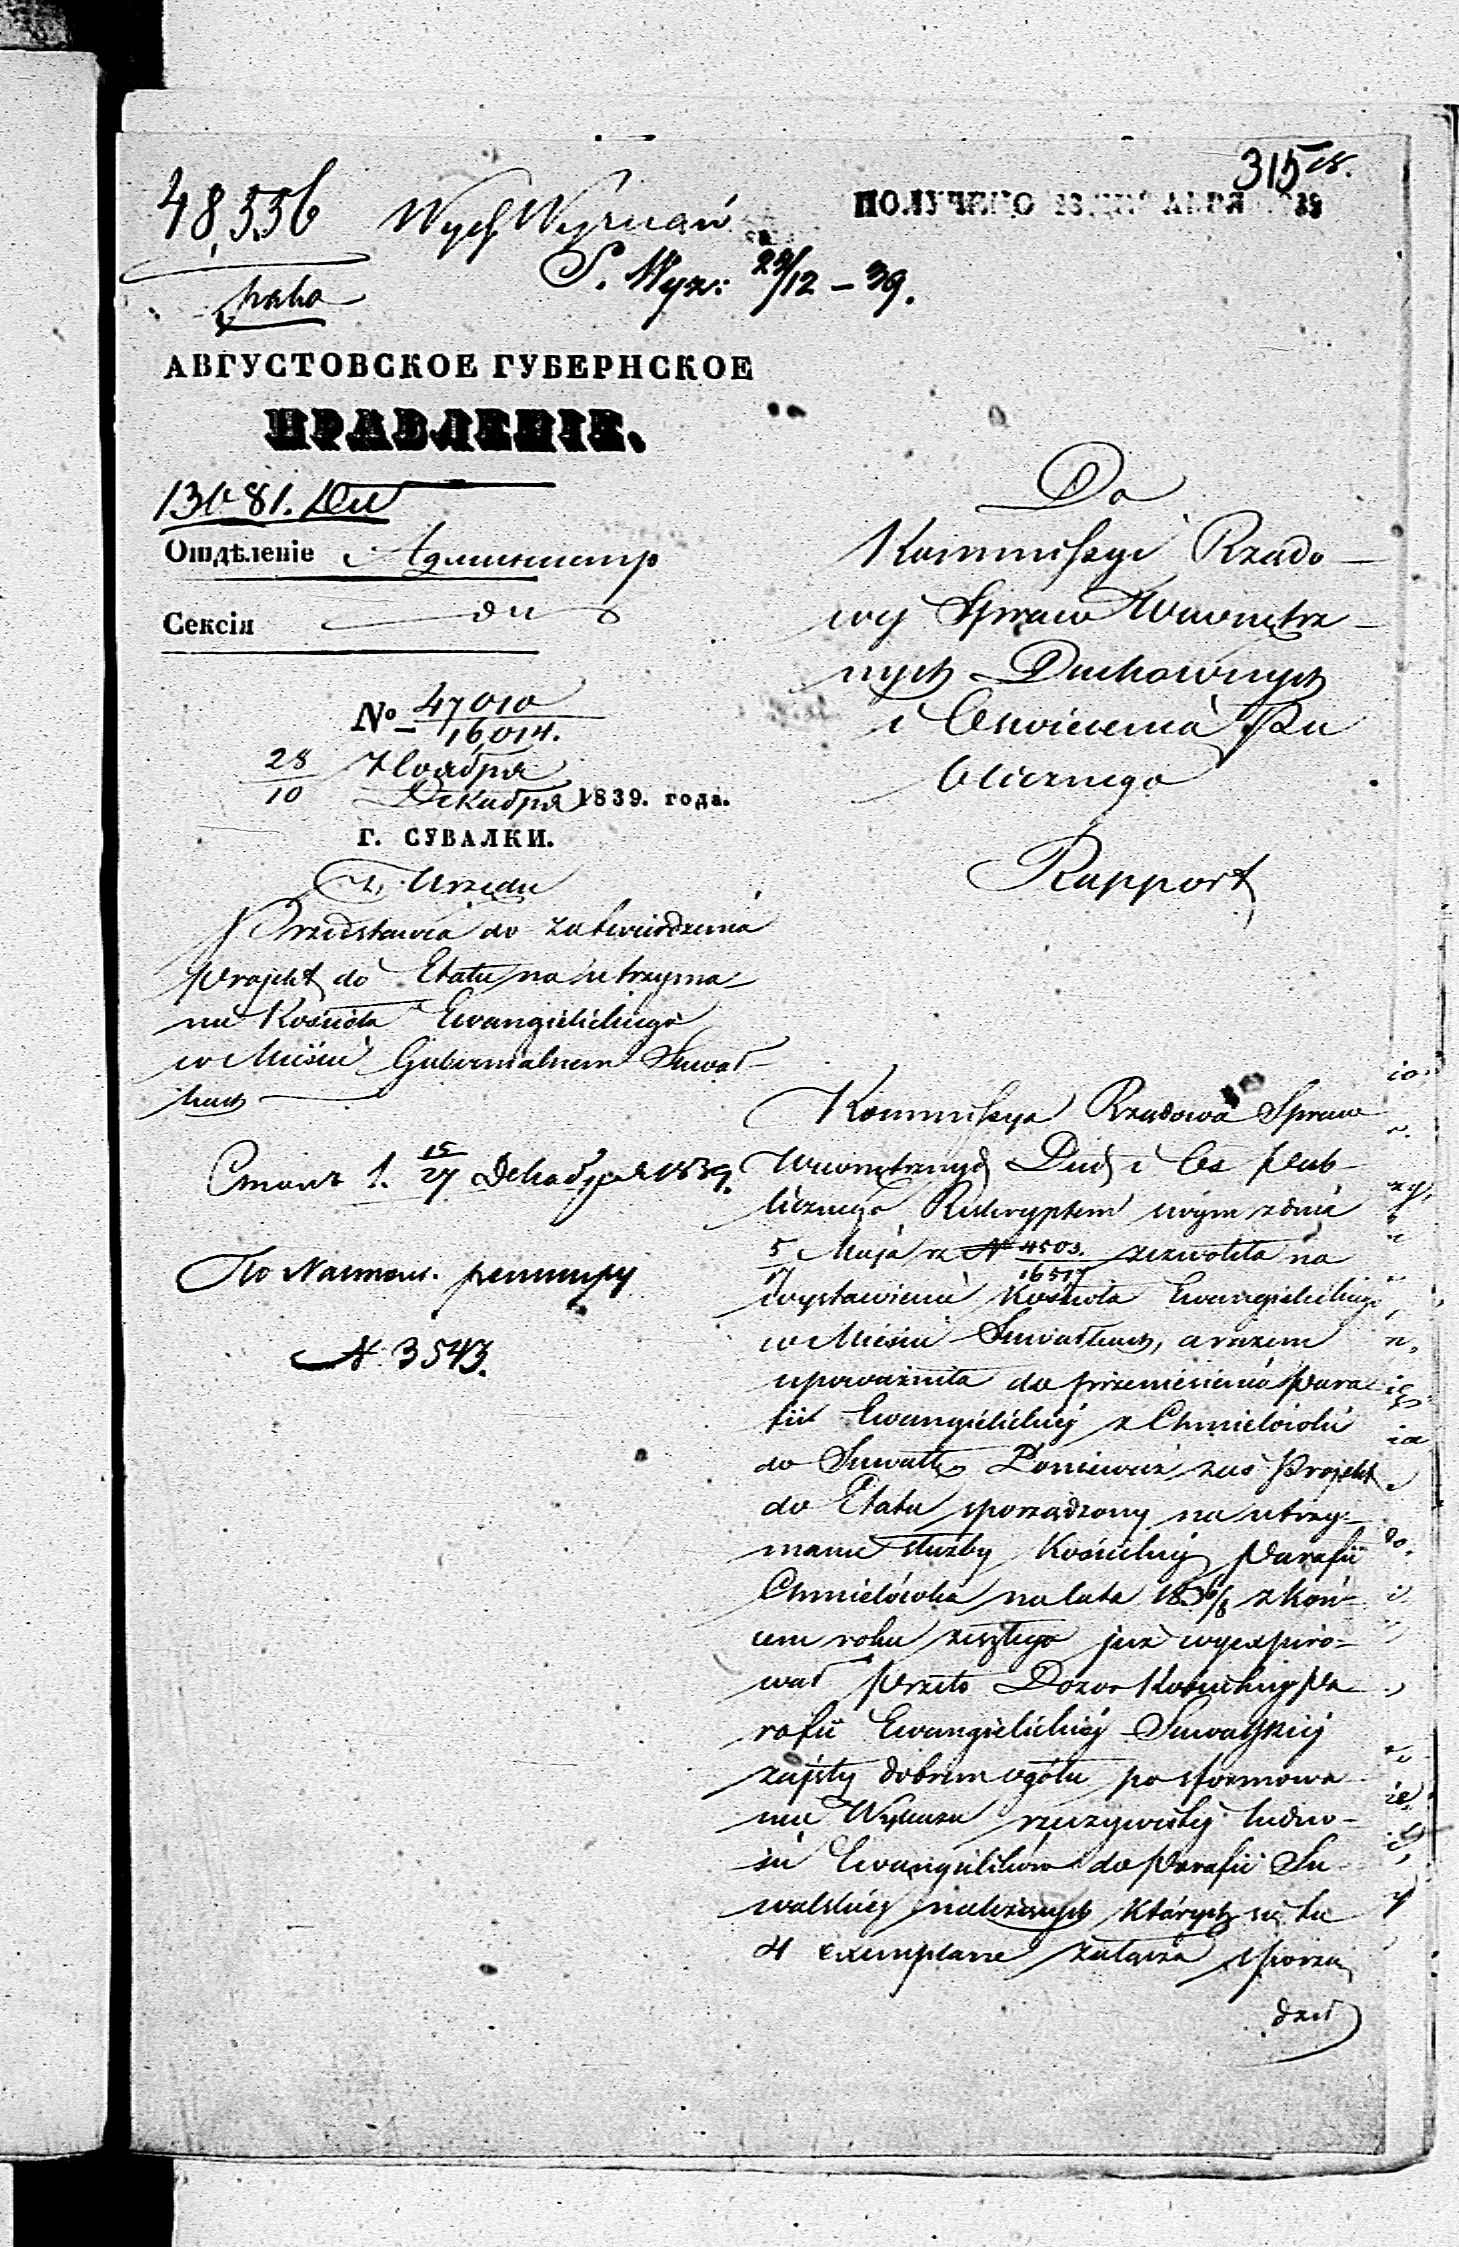 315
ПОЛУЧЕНО 23 ДЕКАБРЯ 1839
48,556 Wyd. Wyznań
S. Wyz: 23/12 – 39.
АВГУСТОВСКОЕ ГУБЕРНСКОЕ
ПРАВЛЕНІЕ.
Отдѣленіе Администр
Сексія ди
№ 47010/16014.
28 Ноября
10 Декабря 1839. года.
Г. СУВАЛКИ.
z Urzędu
Przedstawia do zatwierdzenia
projekt do Etatu na utrzyma-
nie Kościoła Ewangielickiego
w Mieście Gubernialnem Suwał-
kach
Стол 1. 15/27 Декабря 1839.
По Настол. реэстру
№ 3543.
Do
Kommissyi Rządo-
wej Spraw Wewnętrz-
nych Duchownych
i Oświecenia Pu
blicznego
Rapport
Kommissya Rządowa Spraw
Wewnętrznych Duch i Oś Pub-
licznego Reskryptem swym z dnia
5/17 Maja rz N 4503./16517 zezwoliła na
wystawienie Kościoła Ewangielickiego
w Mieście Suwałkach, a razem
upoważniła do przeniesienia para
fii Ewangielickiej z Chmielówki
do Suwałk Ponieważ zaś Projekt
do Etatu sporządzony na utrzy-
manie służby Kościelnej Parafii
Chmielówka na lata 1836/8 z koń-
cem roku zeszłego już wyexpiro-
wał przeto Dozór Kościelny Pa
rafii Ewangielickiej Suwalskiej
zajęty dobrem ogółu po sformowa
niu Wykazu rzeczywistej ludno-
ści Ewangielików do Parafii Su
walskiej należących których się tu
4 exemplarze załącza sporzą
dził